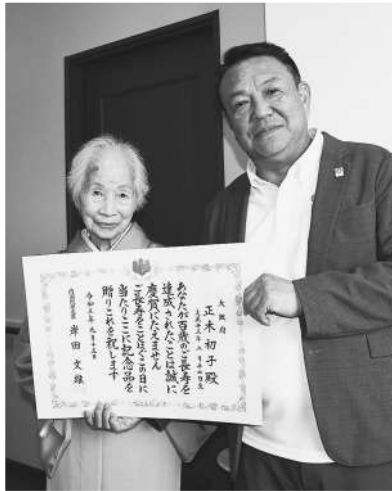 大阪府
正木初子殿
あなたが百歳のご長寿を
達成されたことは誠に
慶賀にたえません
ご長寿をことほぐこの日に
当たりここに記念品を
贈りこれを祝します
令和 年 九月十五日
内閣総理大臣 岸田文雄